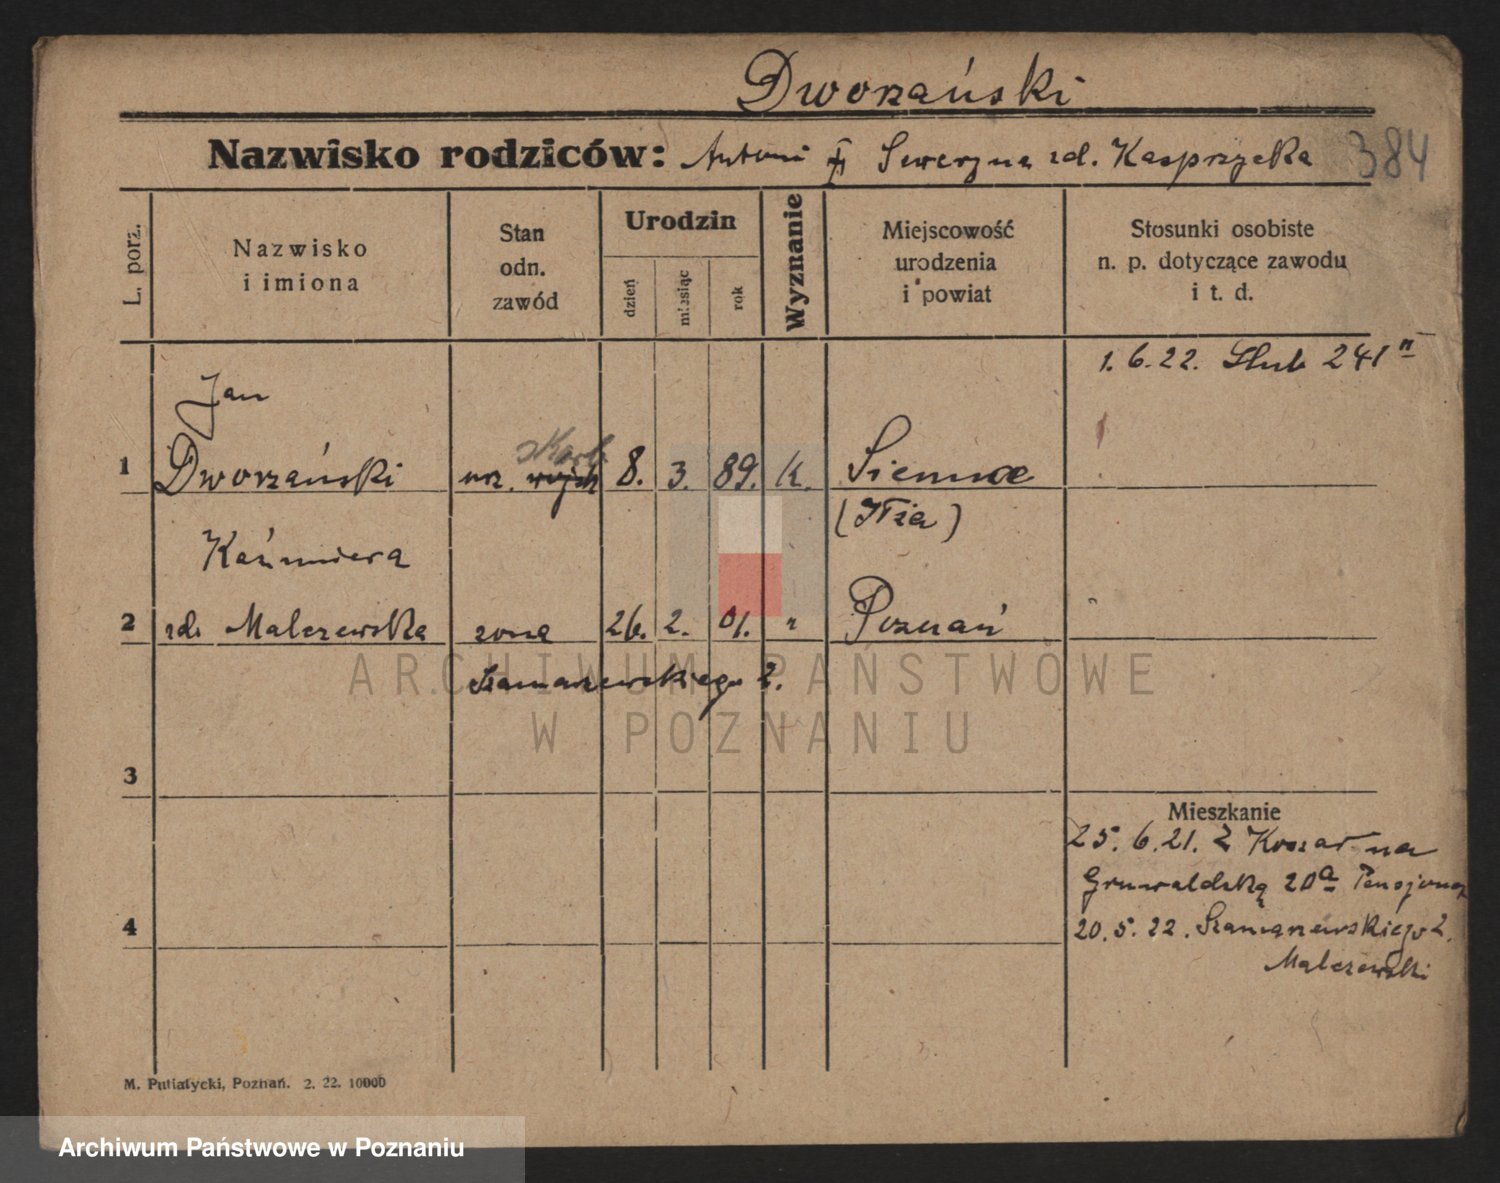 Dworzański
Nazwisko rodziców: Antoni Seweryna zd. Kasprzycka 384
L. porz.
Nazwisko
i imiona
Stan
odn.
zawód
Urodzin
dzień
miesiąc
rok
Wyznanie
Miejscowość
urodzenia
i powiat
Stosunki osobiste
n. p. dotyczące zawodu
i t. d.
1. 6. 22. Ślub 241
Jan
skarb
1 Dworzański urz. wojsk 8. 3. 89. K.
(Iłża)
Kaźmiera
2 zd. Malczewska żona 26. 2. 01. " Poznań
Szamarzewskiego 2.
3
Mieszkanie
25. 6. 21. Z Koszar na
Grunwaldzką 20a
4
20. 5. 22. Szamarzewskiego 2.
Malczewski
M. Putiatycki, Poznań. 2. 22. 10000
ARCHIWUM PAŃSTWOWE
W POZNANIU
Archiwum Państwowe w Poznaniu